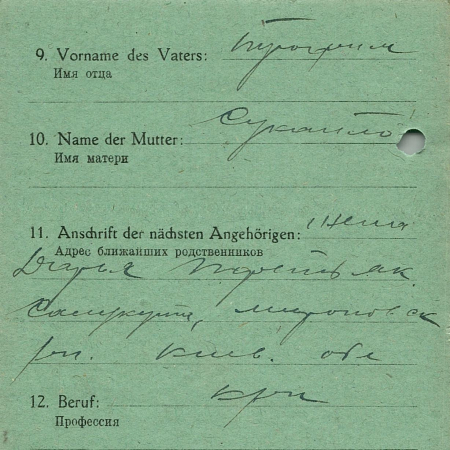 9. Vorname des Vaters: Трофим
Имя отца
10. Name der Mutter: Сукайло
Имя матери
11. Anschrift der nächsten Angehörigen: жена
Адрес ближайших родственников
Дарья
мироновск
рн. Киев. обл
12. Beruf:
Профессия